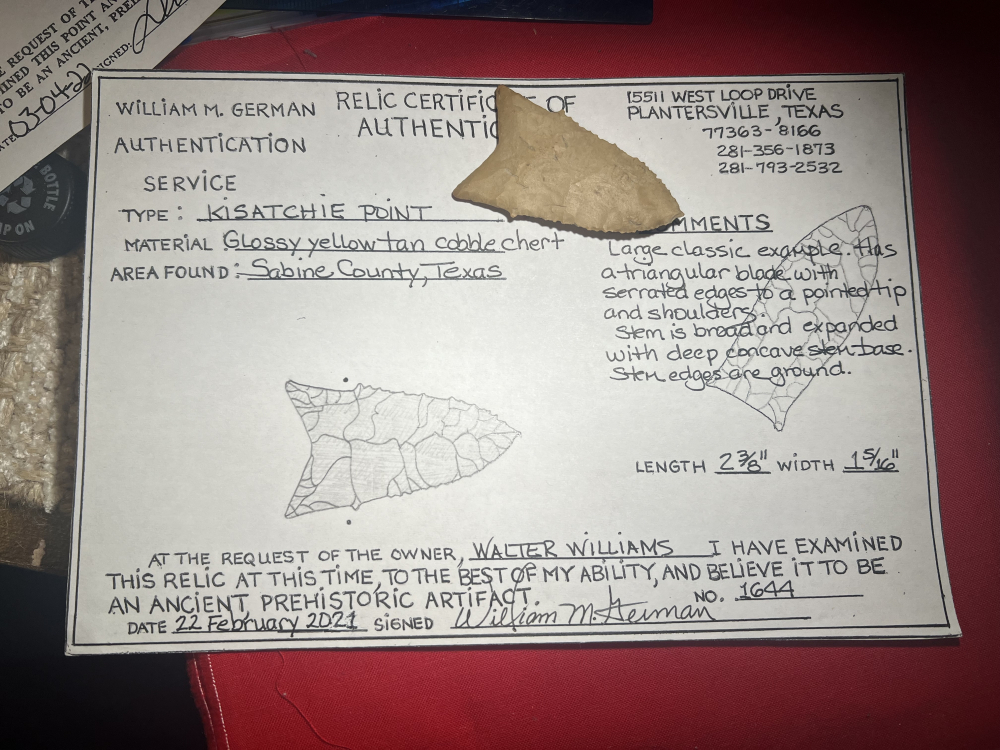 REQUEST OF T
INED THIS POINT AN
TO BE AN ANCIENT, PRE
03-04-22
SIGNED.
BOTTLE
ON
WILLIAM M. GERMAN
AUTHENTICATION
SERVICE
RELIC CERTIFIC E OF
AUTHENTIC
15511 WEST LOOP DRIVE
PLANTERSVILLE, TEXAS
77363-8166
281-356-1873
281-793-2532
TYPE: KISATCHIE POINT
MATERIAL Glossy yellow tan cobble chert
AREA FOUND: Sabine County, Texas
MMENTS
Large classic example. Has
a triangular blade with
serrated edges to a pointed tip
and shoulders.
Stem is broad and expanded
with deep concave stem base.
Stem edges are ground.
LENGTH 2 3/8" WIDTH 1 5/16"
AT THE REQUEST OF THE OWNER, WALTER WILLIAMS I HAVE EXAMINED
THIS RELIC AT THIS TIME, TO THE BEST OF MY ABILITY, AND BELIEVE IT TO BE
AN ANCIENT, PREHISTORIC ARTIFACT. NO. 1644
DATE 22 February 2021 SIGNED William M. German